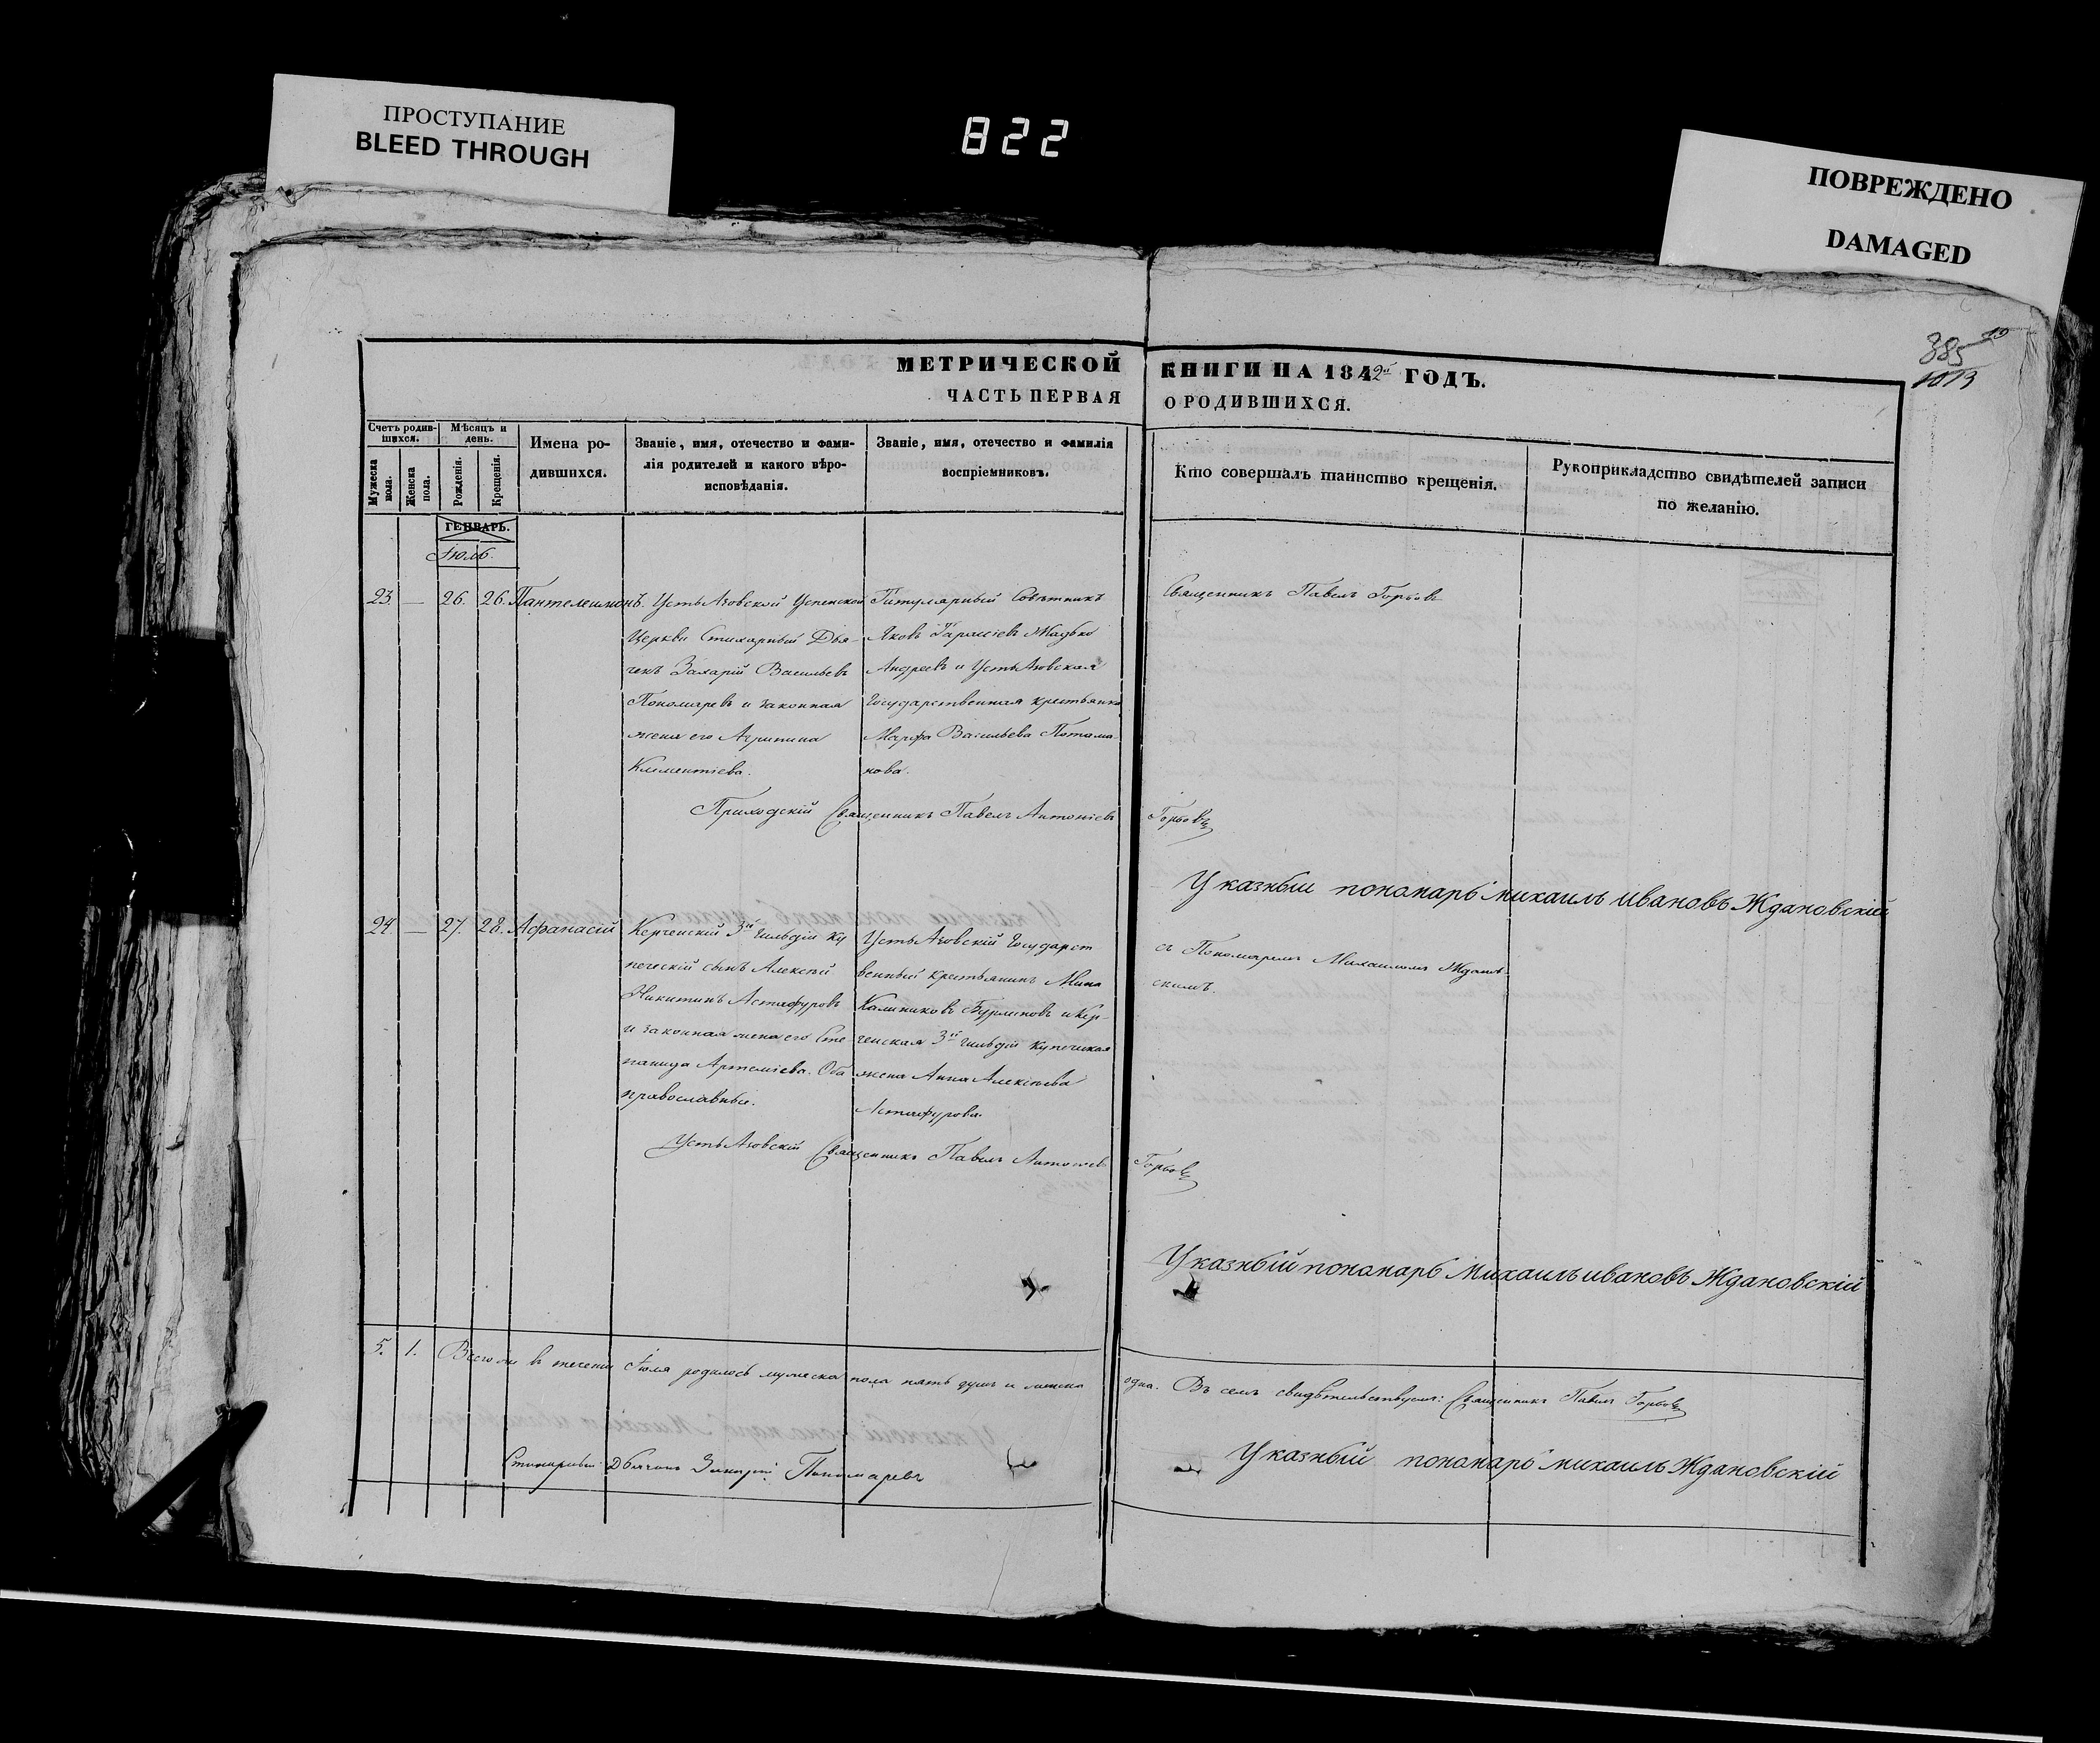 ПРОСТУПАНИЕ
BLEED THROUGH
822
ПОВРЕЖДЕНО
DAMAGED
385
МЕТРИЧЕСКОЙ КНИГИ НА 1842й ГОДЪ.
ЧАСТЬ ПЕРВАЯ О РОДИВШИХСЯ.
Счетъ родив-
шихся.
Мужеска пола.
Женска пола.
Мѣсяцъ и
день.
Рожденія.
Крещенія.
Имена ро-
дившихся.
Званіе, имя, отечество и фами-
лія родителей и какого вѣро-
исповѣданія.
Званіе, имя, отечество и фамилія
воспріемниковъ.
Кто совершалъ таинство крещенія.
Рукоприкладство свидѣтелей записи
по желанію.
ГЕНВАРЬ.
Іюль.
23. — 26. 26. Пантелеимонъ.
Усть Азовской Успенской
Церкви Стихарный Дья-
чекъ Захарій Васильевъ
Пономаревъ и законная
жена его Агрипина
Климентіева.
Титулярный Совѣтникъ
Яковъ Жадько
Андреевъ и Усть Азовская
Государственная крестьянка
Марфа Васильева Потома-
кова.
Священникъ Павелъ Горбовъ
Приходскій Священникъ Павелъ Антоніевъ Горбовъ
Указный пономарь михаилъ ивановъ Ждановскій
24. — 27. 28. Афанасій
Керченскій 3й гильдіи ку
печескій сынъ Алексѣй
Никитинъ Астафуровъ
и законная жена его Сте
панида Артеміева. Оба
православные.
Усть Азовскій Государст
венный крестьянинъ Мина
Калиниковъ Бурлиновъ и Кер-
ченская 3й гильдіи купеческая
жена Анна Алексѣева
Астафурова.
съ Пономаремъ Михаиломъ Жданов-
скимъ.
Усть Азовскій Священникъ Павелъ Антоніевъ Горбовъ
Указный пономарь Михаилъ ивановъ Ждановскій
5. 1. Всего въ теченіи Іюля родилось мужеска пола пять душъ и женска одна. Въ семъ свидѣтельствуемъ: Священникъ Павелъ Горбовъ
Стихарный Дьячекъ Захарій Пономаревъ
Указный пономарь михаилъ Ждановскій